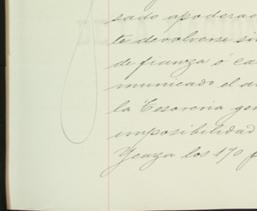 sado apoderad
te devolverse si
de fianza ó ca
municado el a
la Tesoreria gen
imposibilidad
Ycaza los 170 p